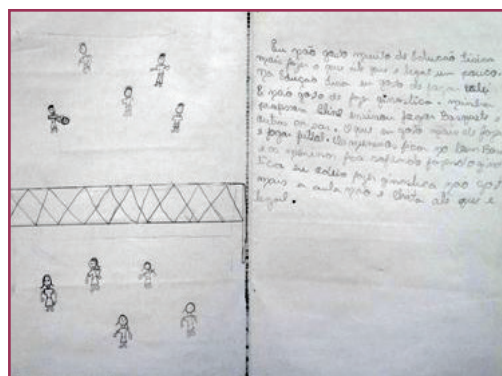 Eu não gosto muito de Educação Física
mais fazer o que até que e legal um pouco.
na Educação fisica eu gosto de jogar volei
E não gosto de fazer ginastica. minha
professora ensinou jogar Basquete e
outras coisas. O que eu gosto mais de fazer
e jogar futsal. Os meninos ficam no bem Bom
e as meninas fica sofrendo fazendo ginas
tica eu odeio fazer ginastica não gosto
mais a aula não e chata até que e
legal.